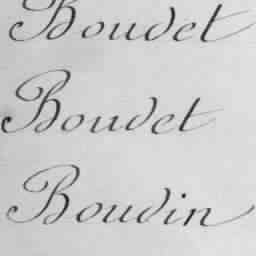 Boudet
Boudet
Boudin